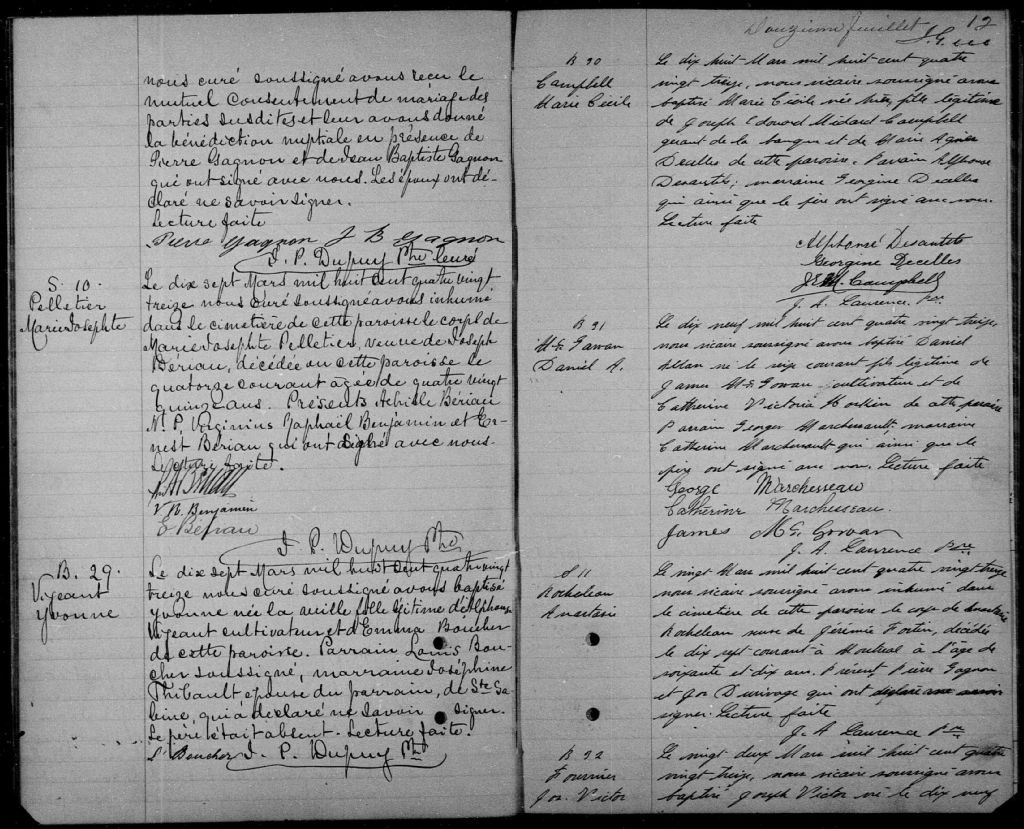 nous curé soussigné avons reçu le
mutuel consentement de mariage des
parties susdites et leur avons donné
la bénédiction nuptiale en présence de
Pierre Gagnon et de Jean Baptiste Gagnon
qui ont signé avec nous. Les époux ont dé-
claré ne savoir signer.
Lecture faite
Pierre Gagnon J B Gagnon
J. P. Dupuy Ptre
S. 10.
Pelletier
Marie Josephte
Le dix sept Mars mil huit cent quatre vingt
treize nous curé soussigné avons inhumé
dans le cimetière de cette paroisse le corps de
Marie Josephte Pelletier, veuve de Joseph
Bériau, décédée en cette paroisse le
quatorze courant âgée de quatre vingt
quinze ans. Présents Achille Bériau
N. P. Virginius Raphaël Benjamin et Er-
nest Bériau qui ont signé avec nous-
Lecture faite.
V. R. Benjamin
E Bériau
J. P. Dupuy Ptre
B. 29.
Vigeant
Yvonne
Le dix sept Mars mil huit cent quatre vingt
treize nous curé soussigné avons baptisé
Yvonne née la veille fille légitime d'Alphonse
Vigeant cultivateur et d'Emma Boucher
de cette paroisse. Parrain Louis Bou-
cher soussigné, marraine Joséphine
Thibault épouse du parrain, de Ste Sa-
bine, qui a déclaré ne savoir signer.
Le père était absent. Lecture faite.
L Boucher J. P. Dupuy Ptre
Douzième feuillet 12
B 30
Campbell
Marie Cécile
Le dix huit Mars mil huit cent quatre
vingt treize, nous vicaire soussigné avons
baptisé Marie Cécile née hier, fille légitime
de Joseph Edouard Médard Campbell
gérant de la banque et de Marie Agnès
Decelles de cette paroisse. Parrain Alphonse
Desautels; marraine Georgine Decelles
qui ainsi que le père ont signé avec nous.
Lecture faite
Alphonse Desautels
Georgine Decelles
J.E.M. Campbell
J. A. Laurence Ptre
B 31
Mc Gowan
Daniel A.
Le dix neuf mil huit cent quatre vingt treize
nous vicaire soussigné avons baptisé Daniel
Allan né le six courant fils légitime de
James Mc Gowan cultivateur et de
Catherine Victoria Hoskin de cette paroisse
Parrain Georges Marchessault marraine
Catherine Marchessault qui ainsi que le
père ont signé avec nous. Lecture faite
George Marchesseau
Catherine Marchesseau.
James Mc Gowan
J. A. Laurence Ptre
S 11
Rocheleau
Anastasie
Le vingt Mars mil huit cent quatre vingt treize
nous vicaire soussigné avons inhumé dans
le cimetière de cette paroisse le corps de Anastasie
Rocheleau veuve de Jérémie Fortin, décédée
le dix sept courant à Montréal à l'âge de
soixante et dix ans. Présents Pierre Gagnon
et Jos Durivage qui ont déclaré ne savoir
signer. Lecture faite
J. A. Laurence Ptre
B 32
Fournier
Jos. Victor
Le vingt deux Mars mil huit cent quatre
vingt treize, nous vicaire soussigné avons
baptisé Joseph Victor né le dix neuf